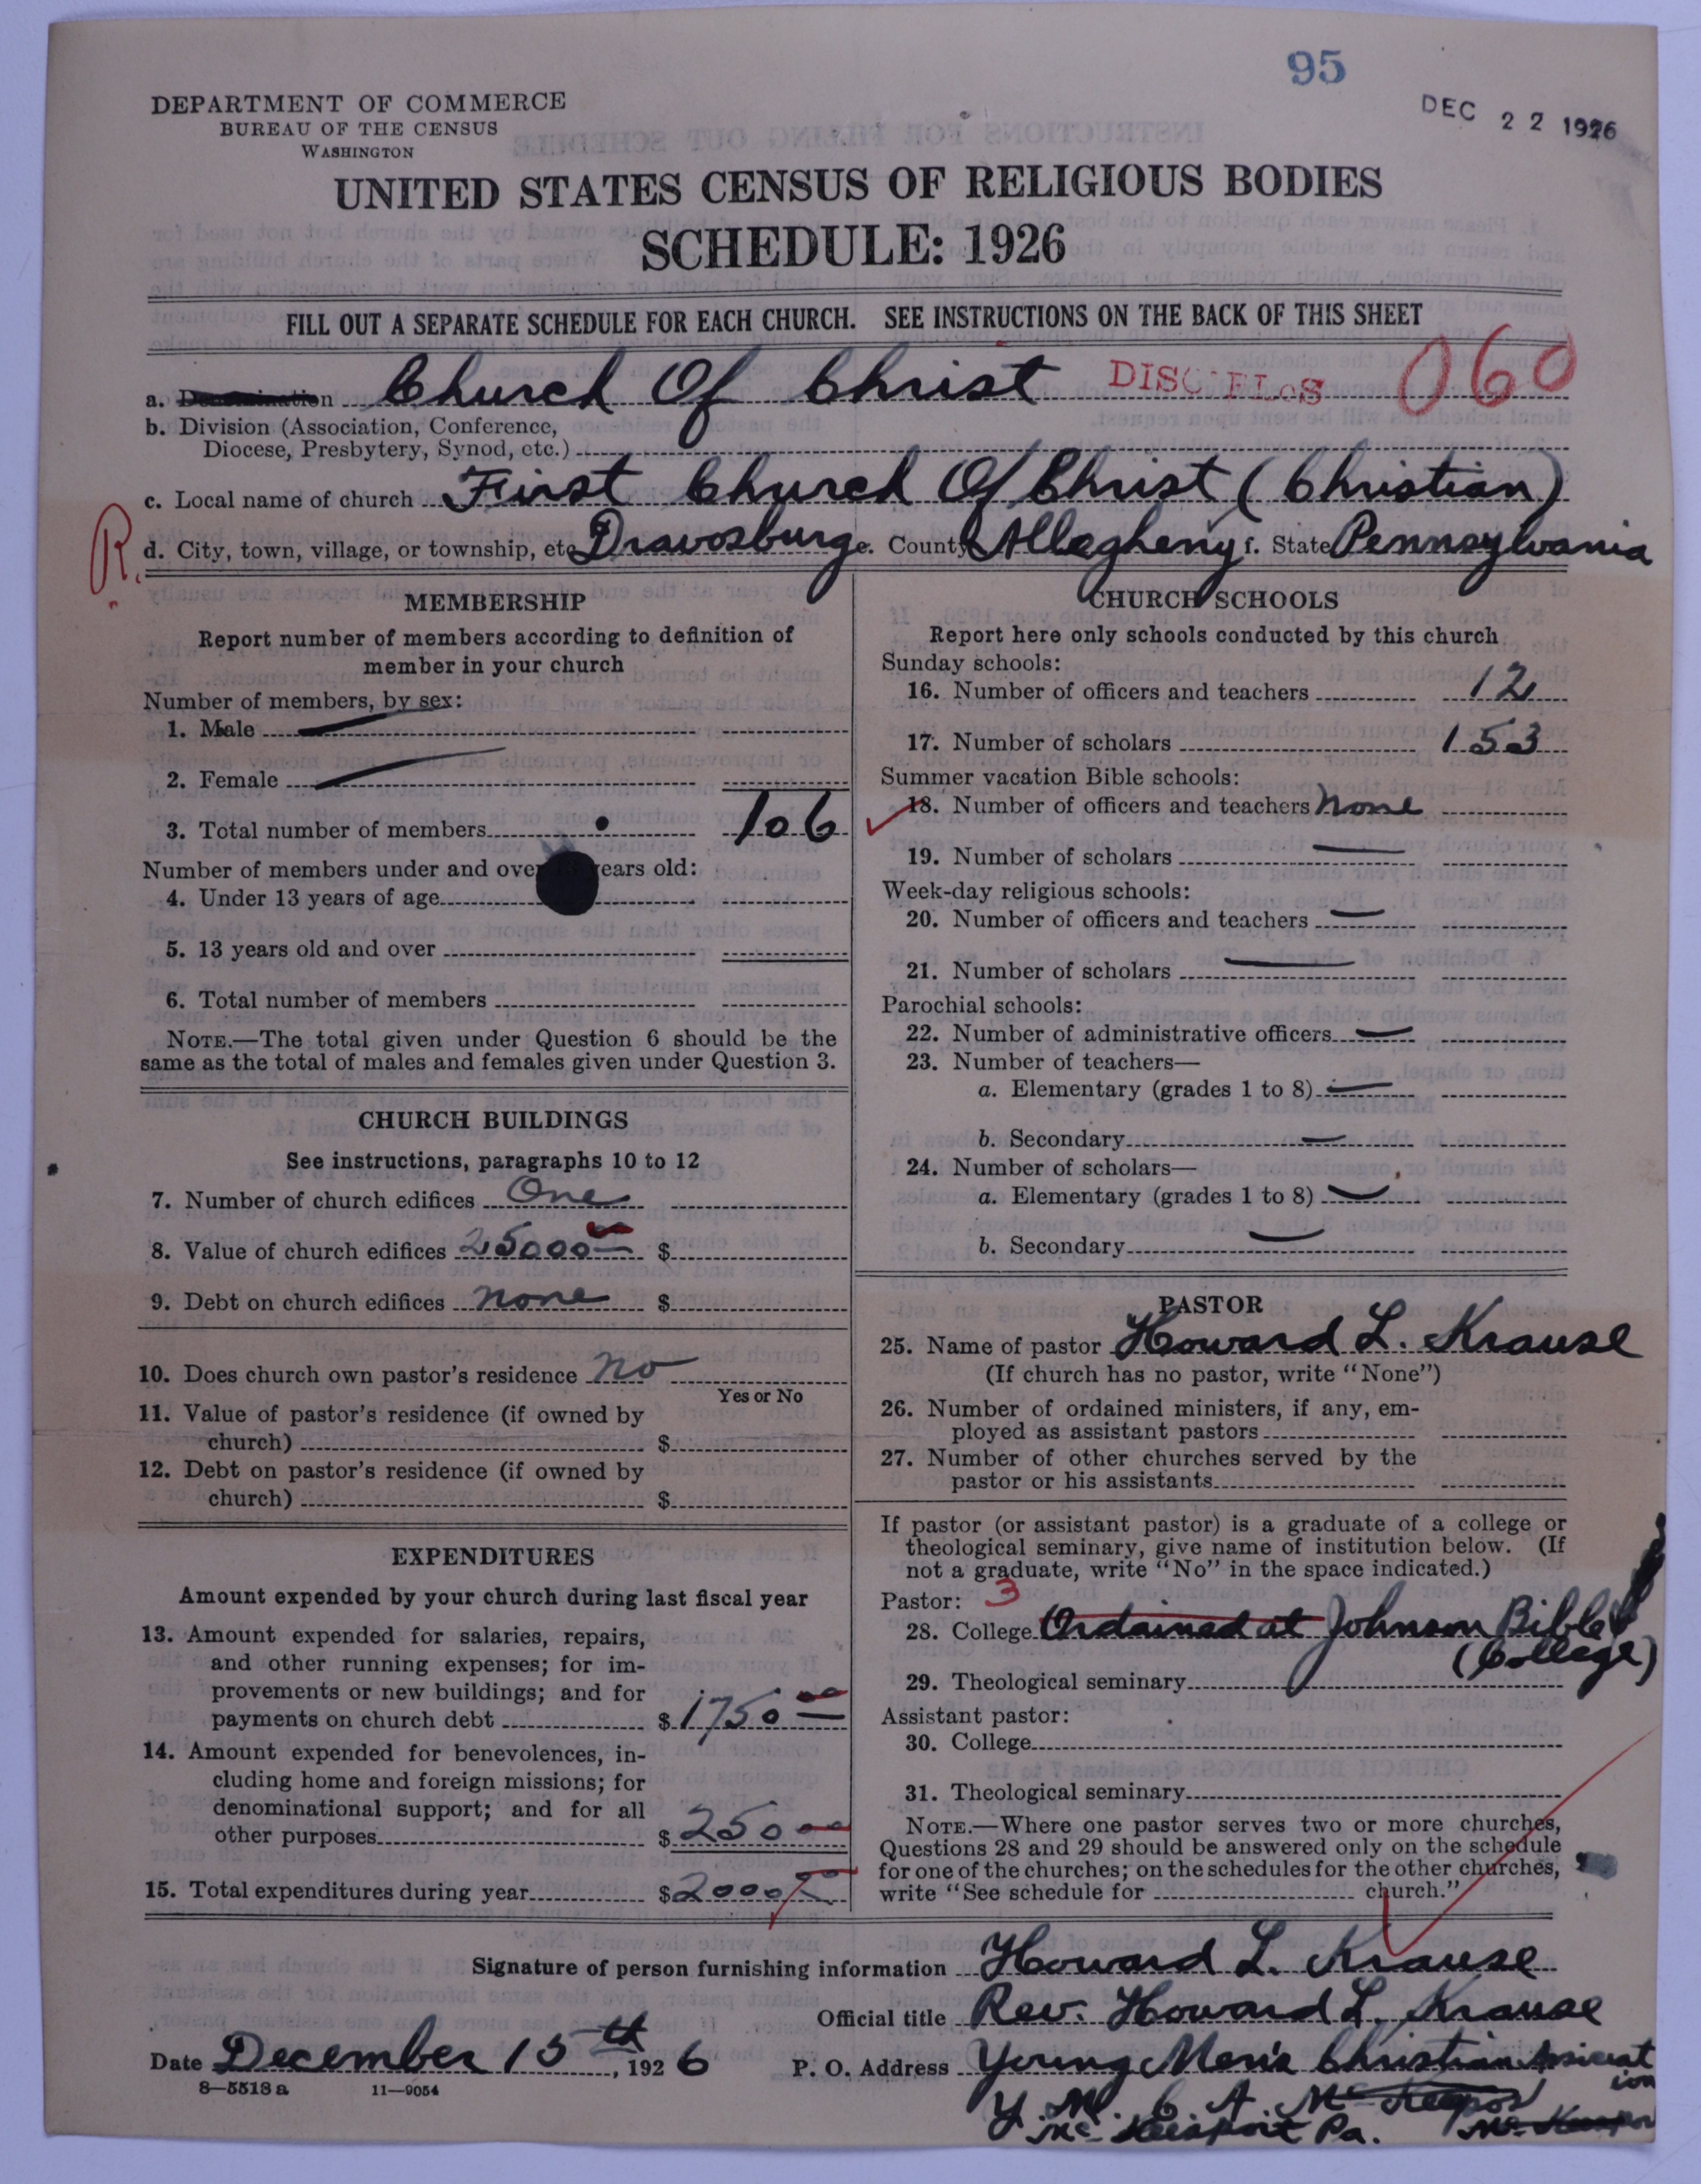 95
DEC 22 1926
DEPARTMENT OF COMMERCE
BUREAU OF THE CENSUS
WASHINGTON
UNITED STATES CENSUS OF RELIGIOUS BODIES
SCHEDULE: 1926
FILL OUT A SEPARATE SCHEDULE FOR EACH CHURCH. SEE INSTRUCTIONS ON THE BACK OF THIS SHEET
a. Denomination Church Of Christ 060
b. Division (Association, Conference,
Diocese, Presbytery, Synod, etc.)
c. Local name of church First Church Of Christ (Christian)
R. d. City, town, village, or township, etc Dravosburg e. County Allegheny f. State Pennsylvania
MEMBERSHIP
Report number of members according to definition of
member in your church
Number of members, by sex:
1. Male
2. Female
3. Total number of members 106
Number of members under and over years old:
4. Under 13 years of age
5. 13 years old and over
6. Total number of members
NOTE.—The total given under Question 6 should be the
same as the total of males and females given under Question 3.
CHURCH BUILDINGS
See instructions, paragraphs 10 to 12
7. Number of church edifices One
8. Value of church edifices 25000 $
9. Debt on church edifices none $
10. Does church own pastor's residence no
Yes or No
11. Value of pastor's residence (if owned by
church) $
12. Debt on pastor's residence (if owned by
church) $
EXPENDITURES
Amount expended by your church during last fiscal year
13. Amount expended for salaries, repairs,
and other running expenses; for im-
provements or new buildings; and for
payments on church debt $ 1750 00
14. Amount expended for benevolences, in-
cluding home and foreign missions; for
denominational support; and for all
other purposes $ 250 00
15. Total expenditures during year $ 2000 00
CHURCH SCHOOLS
Report here only schools conducted by this church
Sunday schools:
16. Number of officers and teachers 12
17. Number of scholars 153
Summer vacation Bible schools:
18. Number of officers and teachers None
19. Number of scholars
Week-day religious schools:
20. Number of officers and teachers
21. Number of scholars
Parochial schools:
22. Number of administrative officers
23. Number of teachers—
a. Elementary (grades 1 to 8)
b. Secondary
24. Number of scholars—
a. Elementary (grades 1 to 8)
b. Secondary
PASTOR
25. Name of pastor Howard L. Krause
(If church has no pastor, write "None")
26. Number of ordained ministers, if any, em-
ployed as assistant pastors
27. Number of other churches served by the
pastor or his assistants
If pastor (or assistant pastor) is a graduate of a college or
theological seminary, give name of institution below. (If
not a graduate, write "No" in the space indicated.)
Pastor: 3
28. College Ordained at Johnson Bible
(College)
29. Theological seminary
Assistant pastor:
30. College
31. Theological seminary
NOTE.—Where one pastor serves two or more churches,
Questions 28 and 29 should be answered only on the schedule
for one of the churches; on the schedules for the other churches,
write "See schedule for church."
Signature of person furnishing information Howard L. Krause
Official title Rev. Howard L. Krause
Date December 15th, 1926 P. O. Address Young Men's Christian Association
8—5518a 11—9054
Y. M. C. A.
McKeesport Pa.